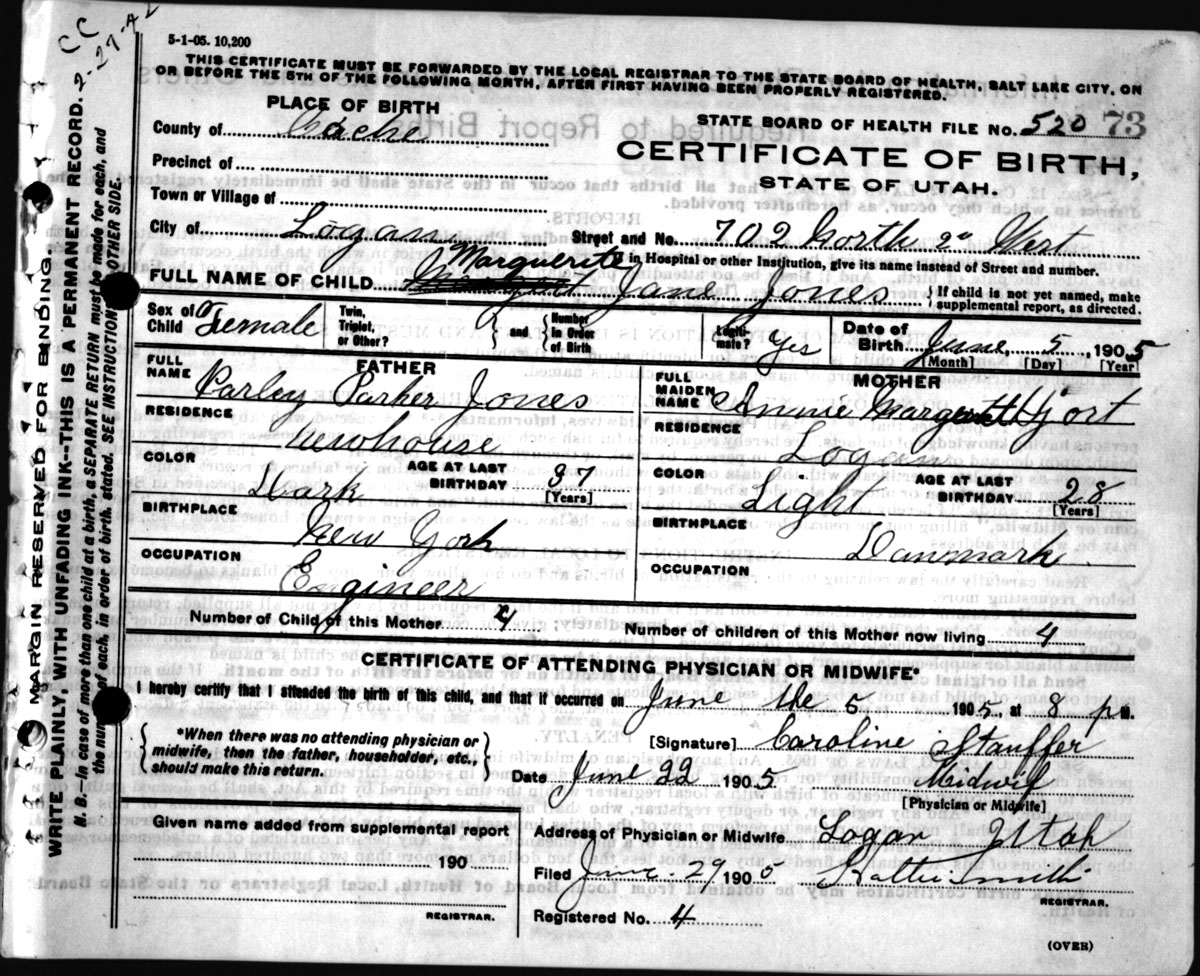 CC
2-27-42
5-1-05. 10,200
THIS CERTIFICATE MUST BE FORWARDED BY THE LOCAL REGISTRAR TO THE STATE BOARD OF HEALTH, SALT LAKE CITY, ON
OR BEFORE THE 5TH OF THE FOLLOWING MONTH, AFTER FIRST HAVING BEEN PROPERLY REGISTERED.
PLACE OF BIRTH
STATE BOARD OF HEALTH FILE NO. 520 73
County of Cache
CERTIFICATE OF BIRTH,
Precinct of
STATE OF UTAH.
Town or Village of
City of Logan Street and No. 702 North 2" West
Marguerite If in Hospital or other Institution, give its name instead of Street and number.
FULL NAME OF CHILD Jane Jones { If child is not yet named, make
supplemental report, as directed.
Sex of Child Female Twin, Triplet, or Other? and { Number in Order of Birth Legiti-mate? yes Date of Birth June 5, 1905
[Month] [Day] [Year]
FATHER
FULL NAME Parley Parker Jones
RESIDENCE Newhouse
COLOR Dark AGE AT LAST BIRTHDAY 37 [Years]
BIRTHPLACE New York
OCCUPATION Engineer
MOTHER
FULL MAIDEN NAME Annie Margrett Hjort
RESIDENCE Logan
COLOR Light AGE AT LAST BIRTHDAY 28 [Years]
BIRTHPLACE Danmark
OCCUPATION
Number of Child of this Mother 4 Number of children of this Mother now living 4
CERTIFICATE OF ATTENDING PHYSICIAN OR MIDWIFE*
I hereby certify that I attended the birth of this child, and that it occurred on June the 5 1905, at 8 p m.
{ *When there was no attending physician or
midwife, then the father, householder, etc.,
should make this return. }
[Signature] Caroline Stauffer
Date June 22 1905 Midwif
[Physician or Midwife]
Given name added from supplemental report
190
REGISTRAR.
Address of Physician or Midwife Logan Utah
Filed June 29 1905 Smith
REGISTRAR.
Registered No. 4
(OVER)
MARGIN RESERVED FOR BINDING.
WRITE PLAINLY, WITH UNFADING INK--THIS IS A PERMANENT RECORD.
N. B.--In case of more than one child at a birth, a SEPARATE RETURN must be made for each, and
the number of each, in order of birth, stated. SEE INSTRUCTIONS OTHER SIDE.